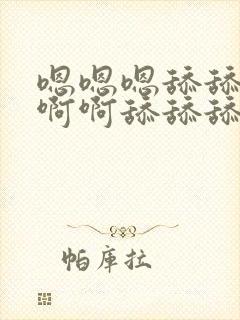 嗯嗯嗯舔舔
啊啊舔舔舔
帕库拉